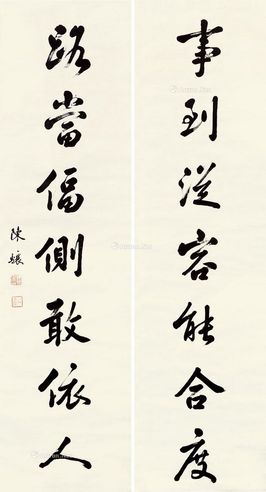 事到從容能合度
路當偪側敢依人
陳壤